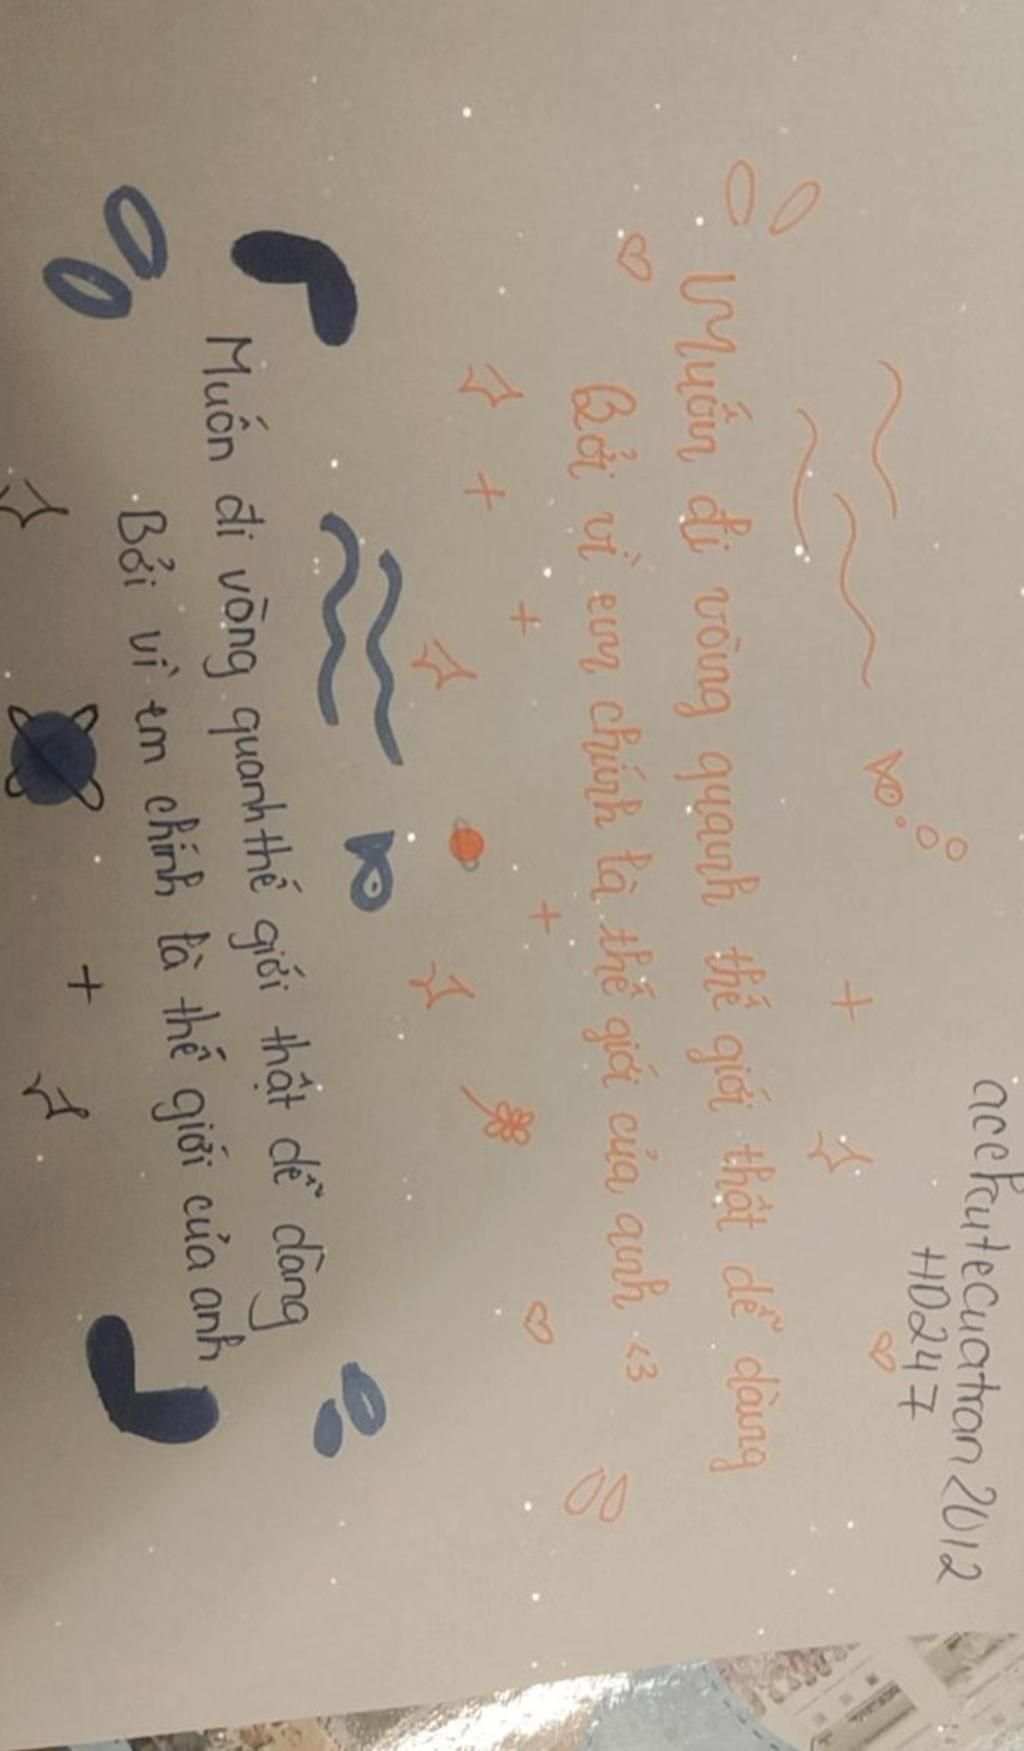 acckutecuatran2012
HD247
Muốn đi vòng quanh thế giới thật dễ dàng
Bởi vì em chính là thế giới của anh <3
Muốn đi vòng quanh thế giới thật dễ dàng
Bởi vì em chính là thế giới của anh